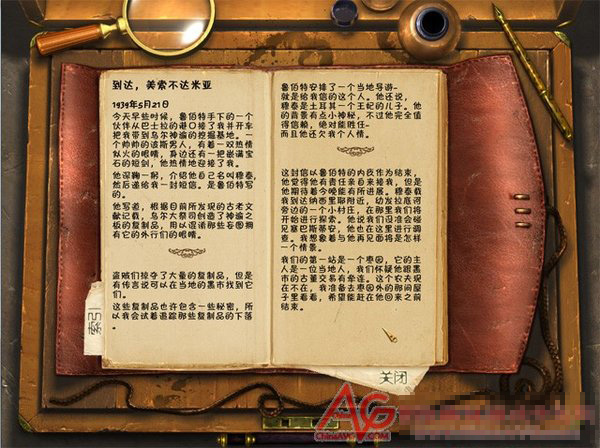 到达，美索不达米亚
1939年5月21日
今天早些时候，鲁伯特手下的一个
伙伴从巴士拉的港口接了我并开车
把我带到乌尔神编的挖掘基地。一
个帅帅的波斯男人，有着一双热情
似火的眼睛，身边还有一把嵌满宝
石的短剑，他热情地迎接了我。
他深鞠一躬，介绍他自己名叫穆泰，
然后递给我一封短信。是鲁伯特写
的。
他写道，根据目前所发现的古老文
献记载，乌尔大祭司创造了神编之
板的复制品，用以混淆那些妄图拥
有它的外行们的眼睛。
盗贼们掠夺了大量的复制品，但是
有传言说可以在当地的黑市找到它
们。
这些复制品也许包含一些秘密，所
以我会试着追踪那些复制品的下落
。
鲁伯特安排了一个当地导游-
就是给我信的这个人。他还说，
穆泰是土耳其一个王妃的儿子。他
的背景有点小神秘，不过他完全值
得信赖，绝对能胜任-
而且他还欠我个人情。
这封信以鲁伯特的内疚作为结束，
他觉得他有责任亲自来接我，但是
他期待着今晚能有所进展。穆泰载
我到达纳西里耶附近，幼发拉底河
旁边的一个小村庄，在那里我们将
开始进行探索。他说我们没准会碰
见塞巴斯蒂安，他也在这里进行调
查。我想象着与他再见面将是怎样
一个情景。
我们的第一站是一个枣园，它的主
人是一位当地人，我们怀疑他跟黑
市的古董交易有牵连。这个农夫现
在不在，我准备去枣园外的那间屋
子里看看，希望能赶在他回来之前
结束。
索引
关闭
AG
ChinaAVG.com